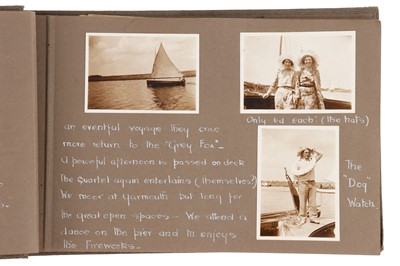 an eventful voyage they once
more return to the "Grey Fox"_
A peaceful afternoon is passed on deck
The Quartet again entertains (themselves!)
We moor at Yarmouth but long for
the great open spaces - We attend a
dance on the pier and m enjoys
the Fireworks.
Only 6d each! (the hats)
The
"Dog"
Watch.